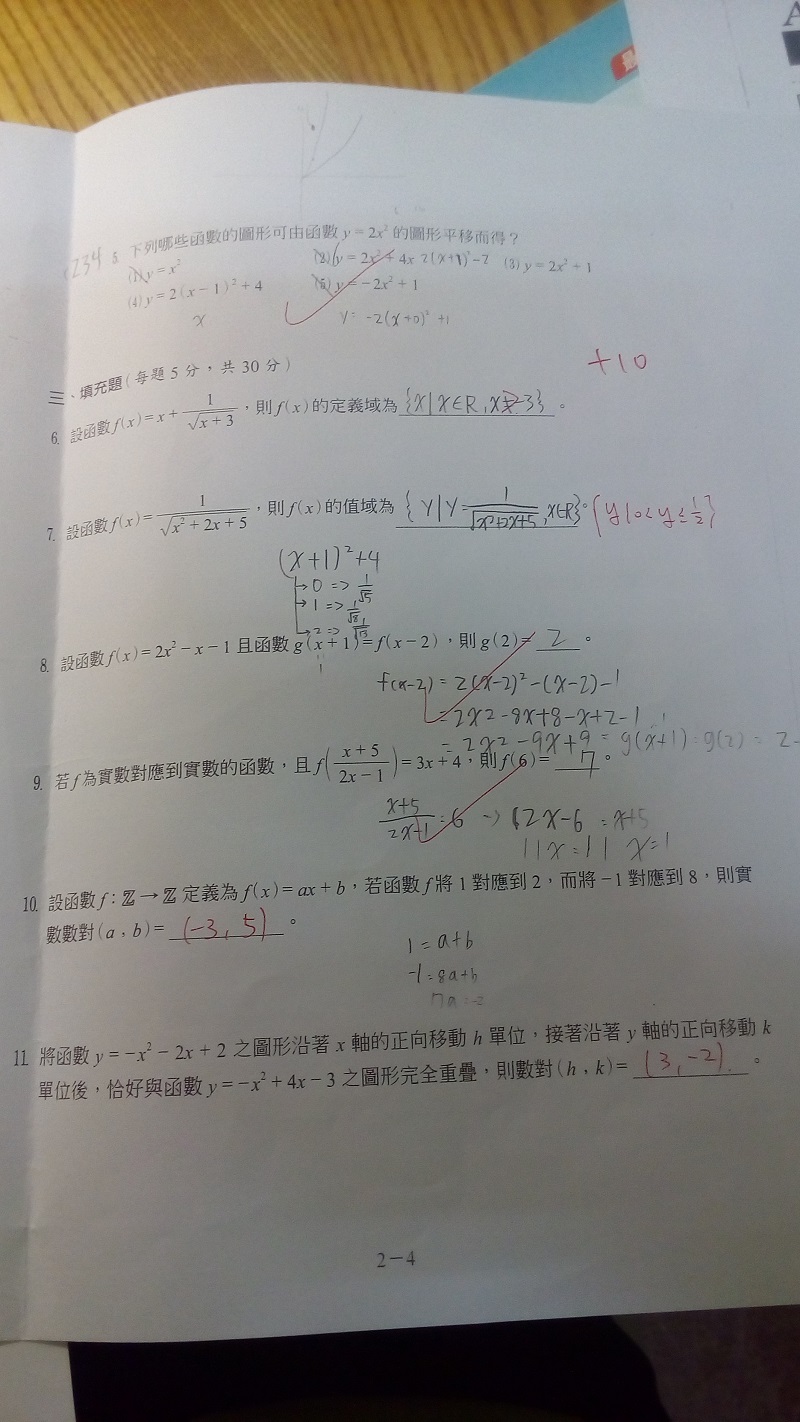 234 5. 下列哪些函數的圖形可由函數 y = 2x² 的圖形平移而得？
(1) y = x² (2) y = 2x² + 4x 2(x+1)² - 2 (3) y = 2x² + 1
(4) y = 2(x - 1)² + 4 (5) y = -2x² + 1
x y = -2(x+0)² + 1
三、填充題(每題 5 分，共 30 分)
+10
6. 設函數 f(x) = x + 1/√(x + 3)，則 f(x) 的定義域為 {x | x∈R, x>-3}。
7. 設函數 f(x) = 1/√(x² + 2x + 5)，則 f(x) 的值域為 { Y | Y = 1/√(x²+2x+5), x∈R}。 {y | 0 < y ≤ 1/2}
(x+1)² + 4
→ 0 => 1/√5
→ 1 => 1/√8
→ 2 => 1/√13
8. 設函數 f(x) = 2x² - x - 1 且函數 g(x + 1) = f(x - 2)，則 g(2) = 2。
1
f(x-2) = 2(x-2)² - (x-2) - 1
= 2x² - 8x + 8 - x + 2 - 1
= 2x² - 9x + 9 = g(x+1) = g(2) = 2 -
9. 若 f 為實數對應到實數的函數，且 f((x + 5)/(2x - 1)) = 3x + 4，則 f(6) = 7。
(x+5)/(2x-1) = 6 → 12x - 6 = x+5
11x = 11 x = 1
10. 設函數 f：ℤ → ℤ 定義為 f(x) = ax + b，若函數 f 將 1 對應到 2，而將 -1 對應到 8，則實
數數對 (a，b) = (-3, 5)。
1 = a+b
-1 = 8a+b
7a = -2
11. 將函數 y = -x² - 2x + 2 之圖形沿著 x 軸的正向移動 h 單位，接著沿著 y 軸的正向移動 k
單位後，恰好與函數 y = -x² + 4x - 3 之圖形完全重疊，則數對 (h，k) = (3, -2)。
2－4